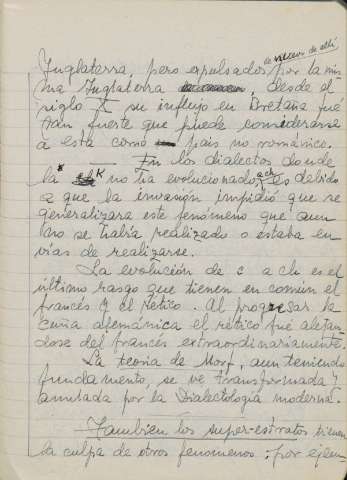 de nuevo de allí
Inglaterra, pero expulsados por la mis
ma Inglaterra, desde el
siglo X su influjo en Bretaña fué
tan fuerte que puede considerarse
a esta como país no románico.
En los dialectos donde
la K no ha evolucionado a ch es debido
a que la invasión impidió que se
generalizara este fenómeno que aun
no se había realizado o estaba en
vías de realizarse.
La evolución de c a ch es el
último rasgo que tienen en común el
francés y el rético. Al progresar la
cuña alemánica el rético fué aleján
dose del francés extraordinariamente.
La teoría de Morf, aun teniendo
fundamento, se ve transformada y
anulada por la Dialectología moderna.
También los super-estratos tienen
la culpa de otros fenómenos: por ejem